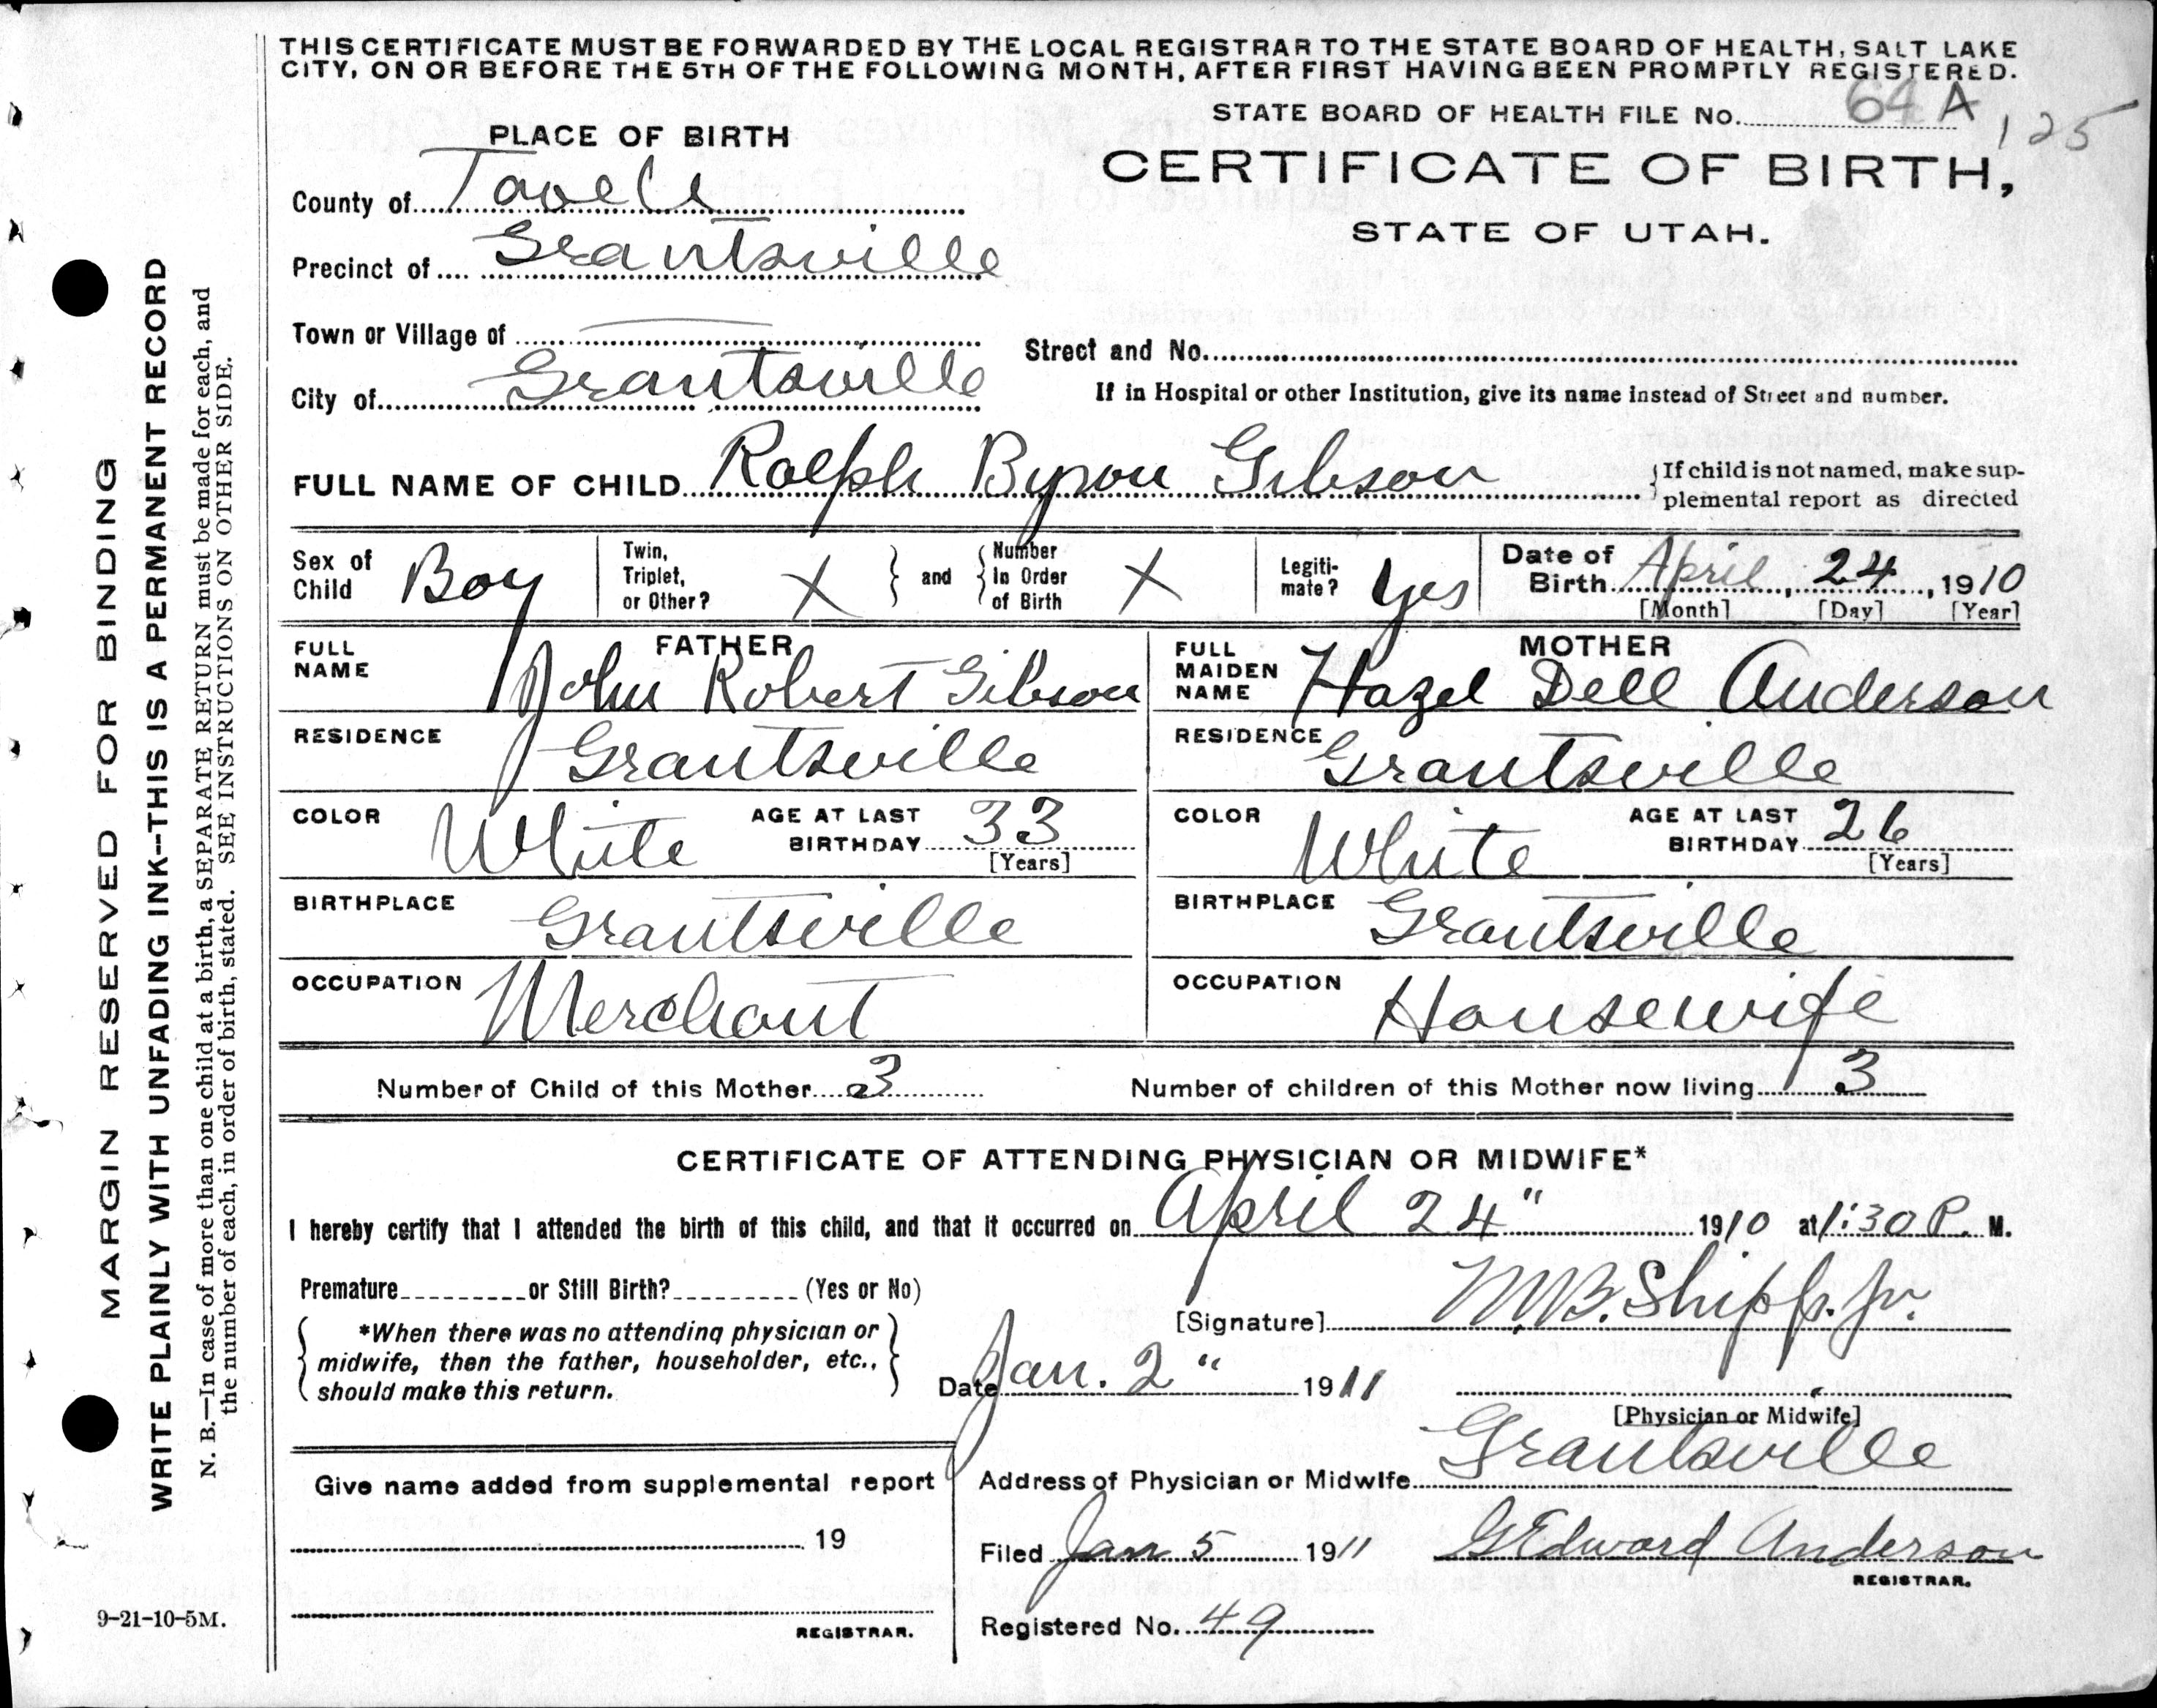 THIS CERTIFICATE MUST BE FORWARDED BY THE LOCAL REGISTRAR TO THE STATE BOARD OF HEALTH, SALT LAKE
CITY, ON OR BEFORE THE 5TH OF THE FOLLOWING MONTH, AFTER FIRST HAVING BEEN PROMPTLY REGISTERED.
STATE BOARD OF HEALTH FILE No. 64 A 125
PLACE OF BIRTH
CERTIFICATE OF BIRTH,
STATE OF UTAH.
County of Tooele
Precinct of Grantsville
Town or Village of
Street and No.
City of Grantsville
If in Hospital or other Institution, give its name instead of Street and number.
FULL NAME OF CHILD Ralph Byron Gibson
{If child is not named, make sup-
plemental report as directed
Sex of Child Boy
Twin, Triplet, or Other? X } and { Number In Order of Birth X
Legiti-mate? Yes
Date of Birth April, 24, 1910
[Month] [Day] [Year]
FATHER
FULL NAME John Robert Gibson
RESIDENCE Grantsville
COLOR White AGE AT LAST BIRTHDAY 33 [Years]
BIRTHPLACE Grantsville
OCCUPATION Merchant
MOTHER
FULL MAIDEN NAME Hazel Dell Anderson
RESIDENCE Grantsville
COLOR White AGE AT LAST BIRTHDAY 26 [Years]
BIRTHPLACE Grantsville
OCCUPATION Housewife
Number of Child of this Mother 3 Number of children of this Mother now living 3
CERTIFICATE OF ATTENDING PHYSICIAN OR MIDWIFE*
I hereby certify that I attended the birth of this child, and that it occurred on April 24" 1910 at 1:30 P. M.
Premature or Still Birth? (Yes or No)
{ *When there was no attending physician or
midwife, then the father, householder, etc.,
should make this return. }
[Signature] M.B. Shipp. Jr.
Date Jan. 2" 1911
[Physician or Midwife]
Address of Physician or Midwife Grantsville
Give name added from supplemental report
19
REGISTRAR.
Filed Jan 5 1911 G Edward Anderson
REGISTRAR.
Registered No. 49
9-21-10-5M.
MARGIN RESERVED FOR BINDING
WRITE PLAINLY WITH UNFADING INK--THIS IS A PERMANENT RECORD
N. B.—In case of more than one child at a birth, a SEPARATE RETURN must be made for each, and
the number of each, in order of birth, stated. SEE INSTRUCTIONS ON OTHER SIDE.